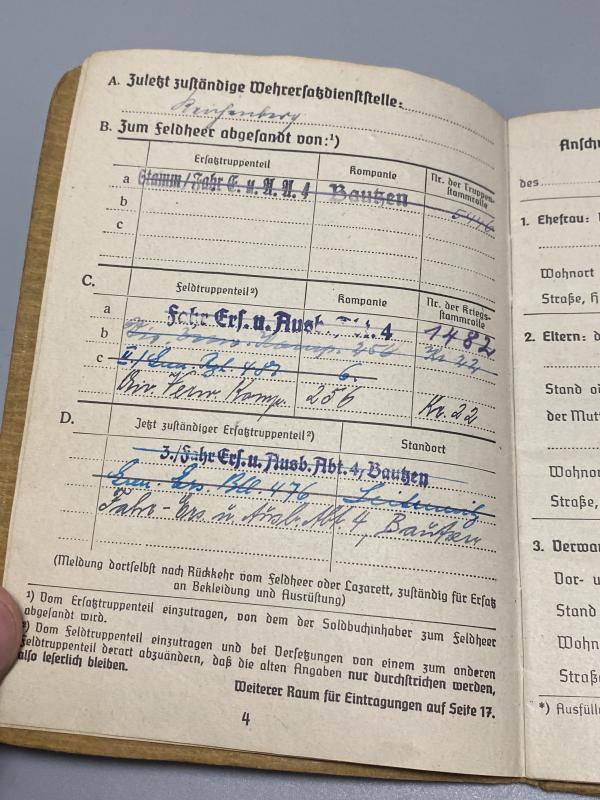 A. Zuletzt zuständige Wehrersatzdienststelle:
Reichenberg
B. Zum Feldheer abgesandt von:¹)
Ersatztruppenteil Kompanie Nr. der Truppen-
stammrolle
a Stamm/Fahr E. u. A. A. 4 Bautzen 5446
b
c
C. Feldtruppenteil²) Kompanie Nr. der Kriegs-
stammrolle
a Fahr Ers. u. Ausb. 4 1482
b 256 Nr. 22
c II./Gren. Rgt. 487 6.
Div. Verw. Komp. 256 Nr. 22
D. Jetzt zuständiger Ersatztruppenteil²) Standort
3./Fahr Ers. u. Ausb. Abt. 4, Bautzen
Gren. Ers. Btl. 476 Leitmeritz
Fahr-Ers u. Ausb. Abt 4, Bautzen
(Meldung dortselbst nach Rückkehr vom Feldheer oder Lazarett, zuständig für Ersatz
an Bekleidung und Ausrüstung)
¹) Vom Ersatztruppenteil einzutragen, von dem der Soldbuchinhaber zum Feldheer
abgesandt wird.
²) Vom Feldtruppenteil einzutragen und bei Versetzungen von einem zum anderen
Feldtruppenteil derart abzuändern, daß die alten Angaben nur durchstrichen werden,
also leserlich bleiben.
Weiterer Raum für Eintragungen auf Seite 17.
4
Ansch
des
1. Ehefrau:
Wohnort
Straße, H
2. Eltern: d
Stand
der Mut
Wohnor
Straße,
3. Verwa
Vor- u
Stand
Wohn
Straße
*) Ausfülle